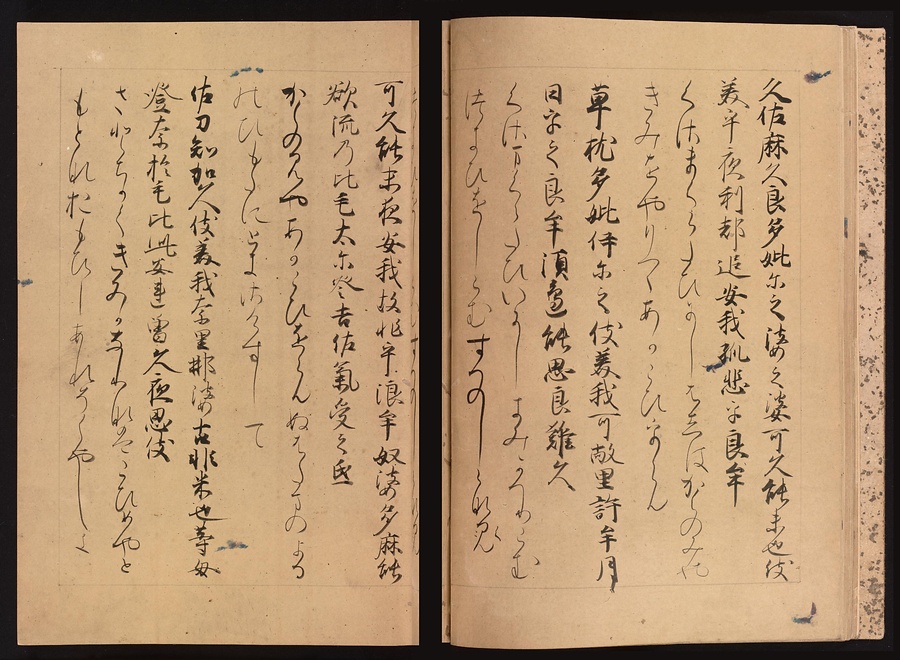 久佐麻久良多妣尓之婆之婆可久能未也伎
美乎夜利都追安我孤悲乎良牟
くさまくらたひにしはしはかくのみや
きみをやりつゝあかこひをらん
草枕多妣伊尓之伎美我可敝里許牟月
日乎之良牟須邊能思良難久
くさまくらたひいにしきみかへりこむ
つきひをしらむすへのしられぬ
可久能未夜安我故非乎浪牟奴婆多麻能
欲流乃比毛太尓登吉佐氣受之氐
かくのみやあかこひをらんぬはたまのよる
のひもたにときさけすして
佐刀知加久伎美我奈里那婆古非米也等母
登奈於毛比此安連曽久夜思伎
さとちかくきみかなりなはこひめやと
もとなおもひしあれそくやしき